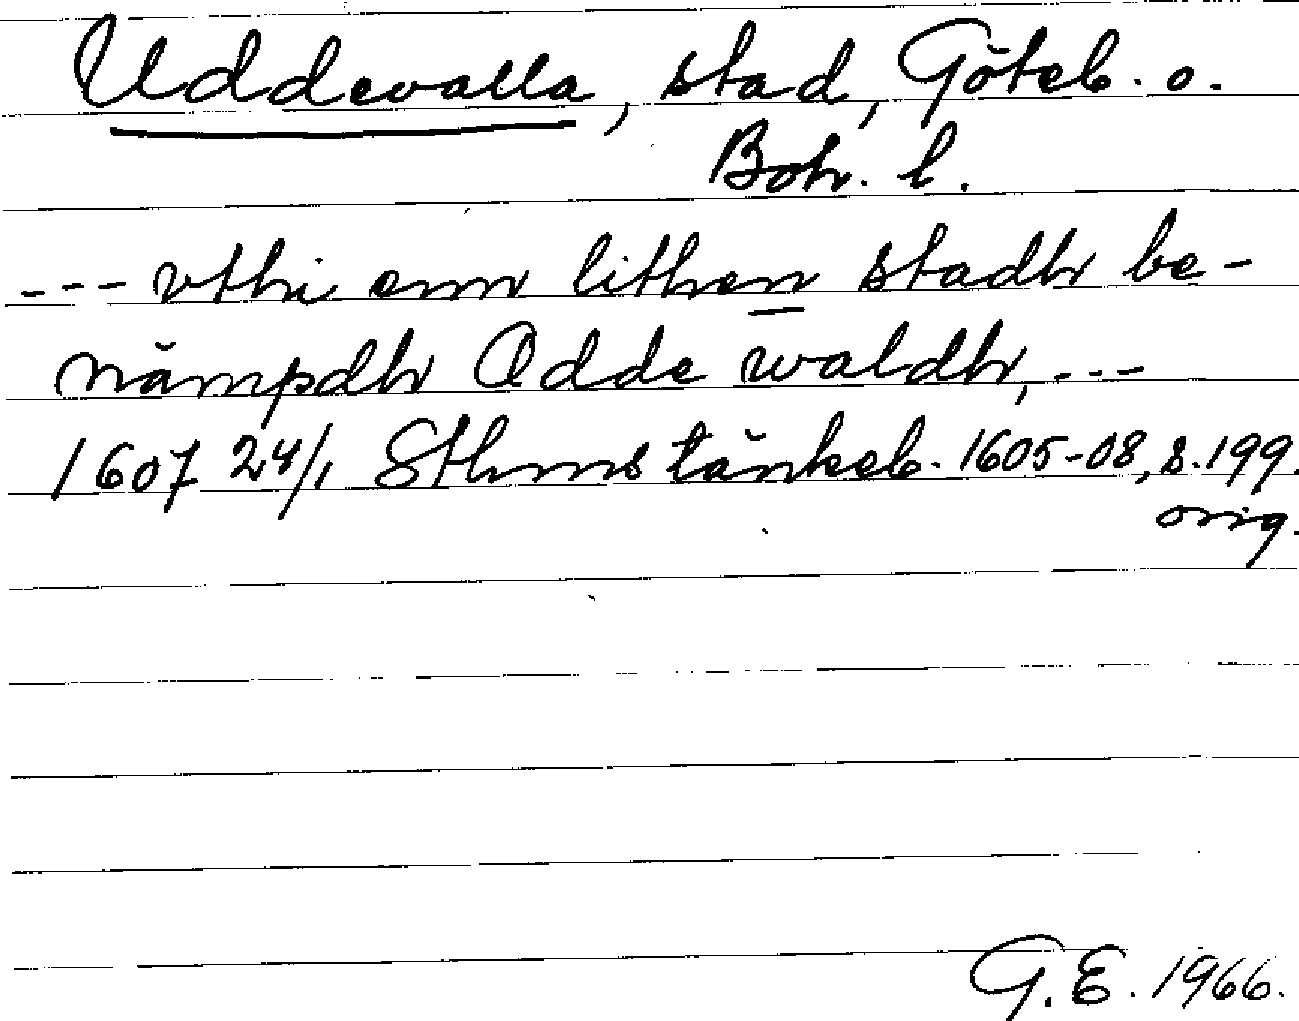 Uddevalla, stad, Göteb. o.
Boh. l.
--- vthi enn lithen stadh be-
nämpdh Odde waldh, ---
1607 24/1 Sthms tänkeb. 1605-08, s. 199.
orig.
G. E. 1966.